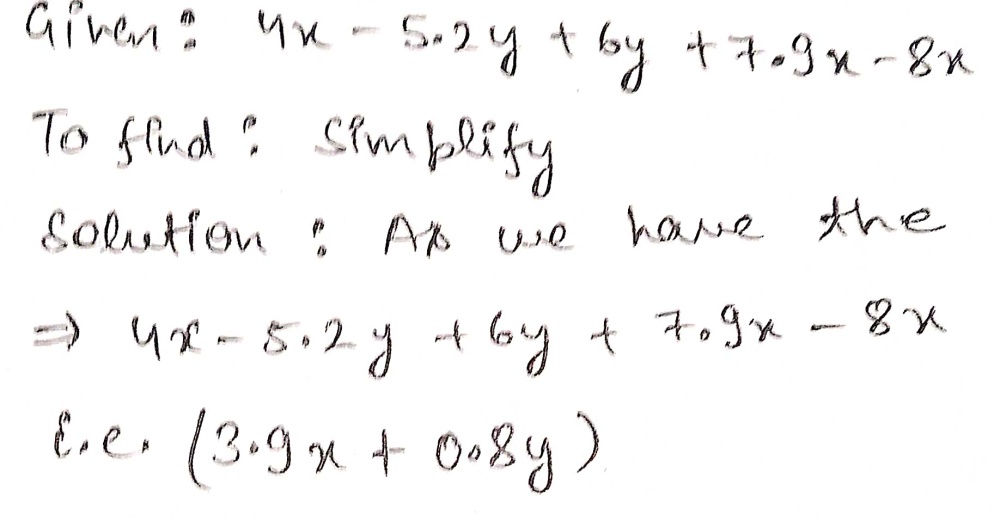 Given : 4x - 5.2y + 6y + 7.9x - 8x
To find : Simplify
Solution : As we have the
⇒ 4x - 5.2y + 6y + 7.9x - 8x
i.e. (3.9x + 0.8y)